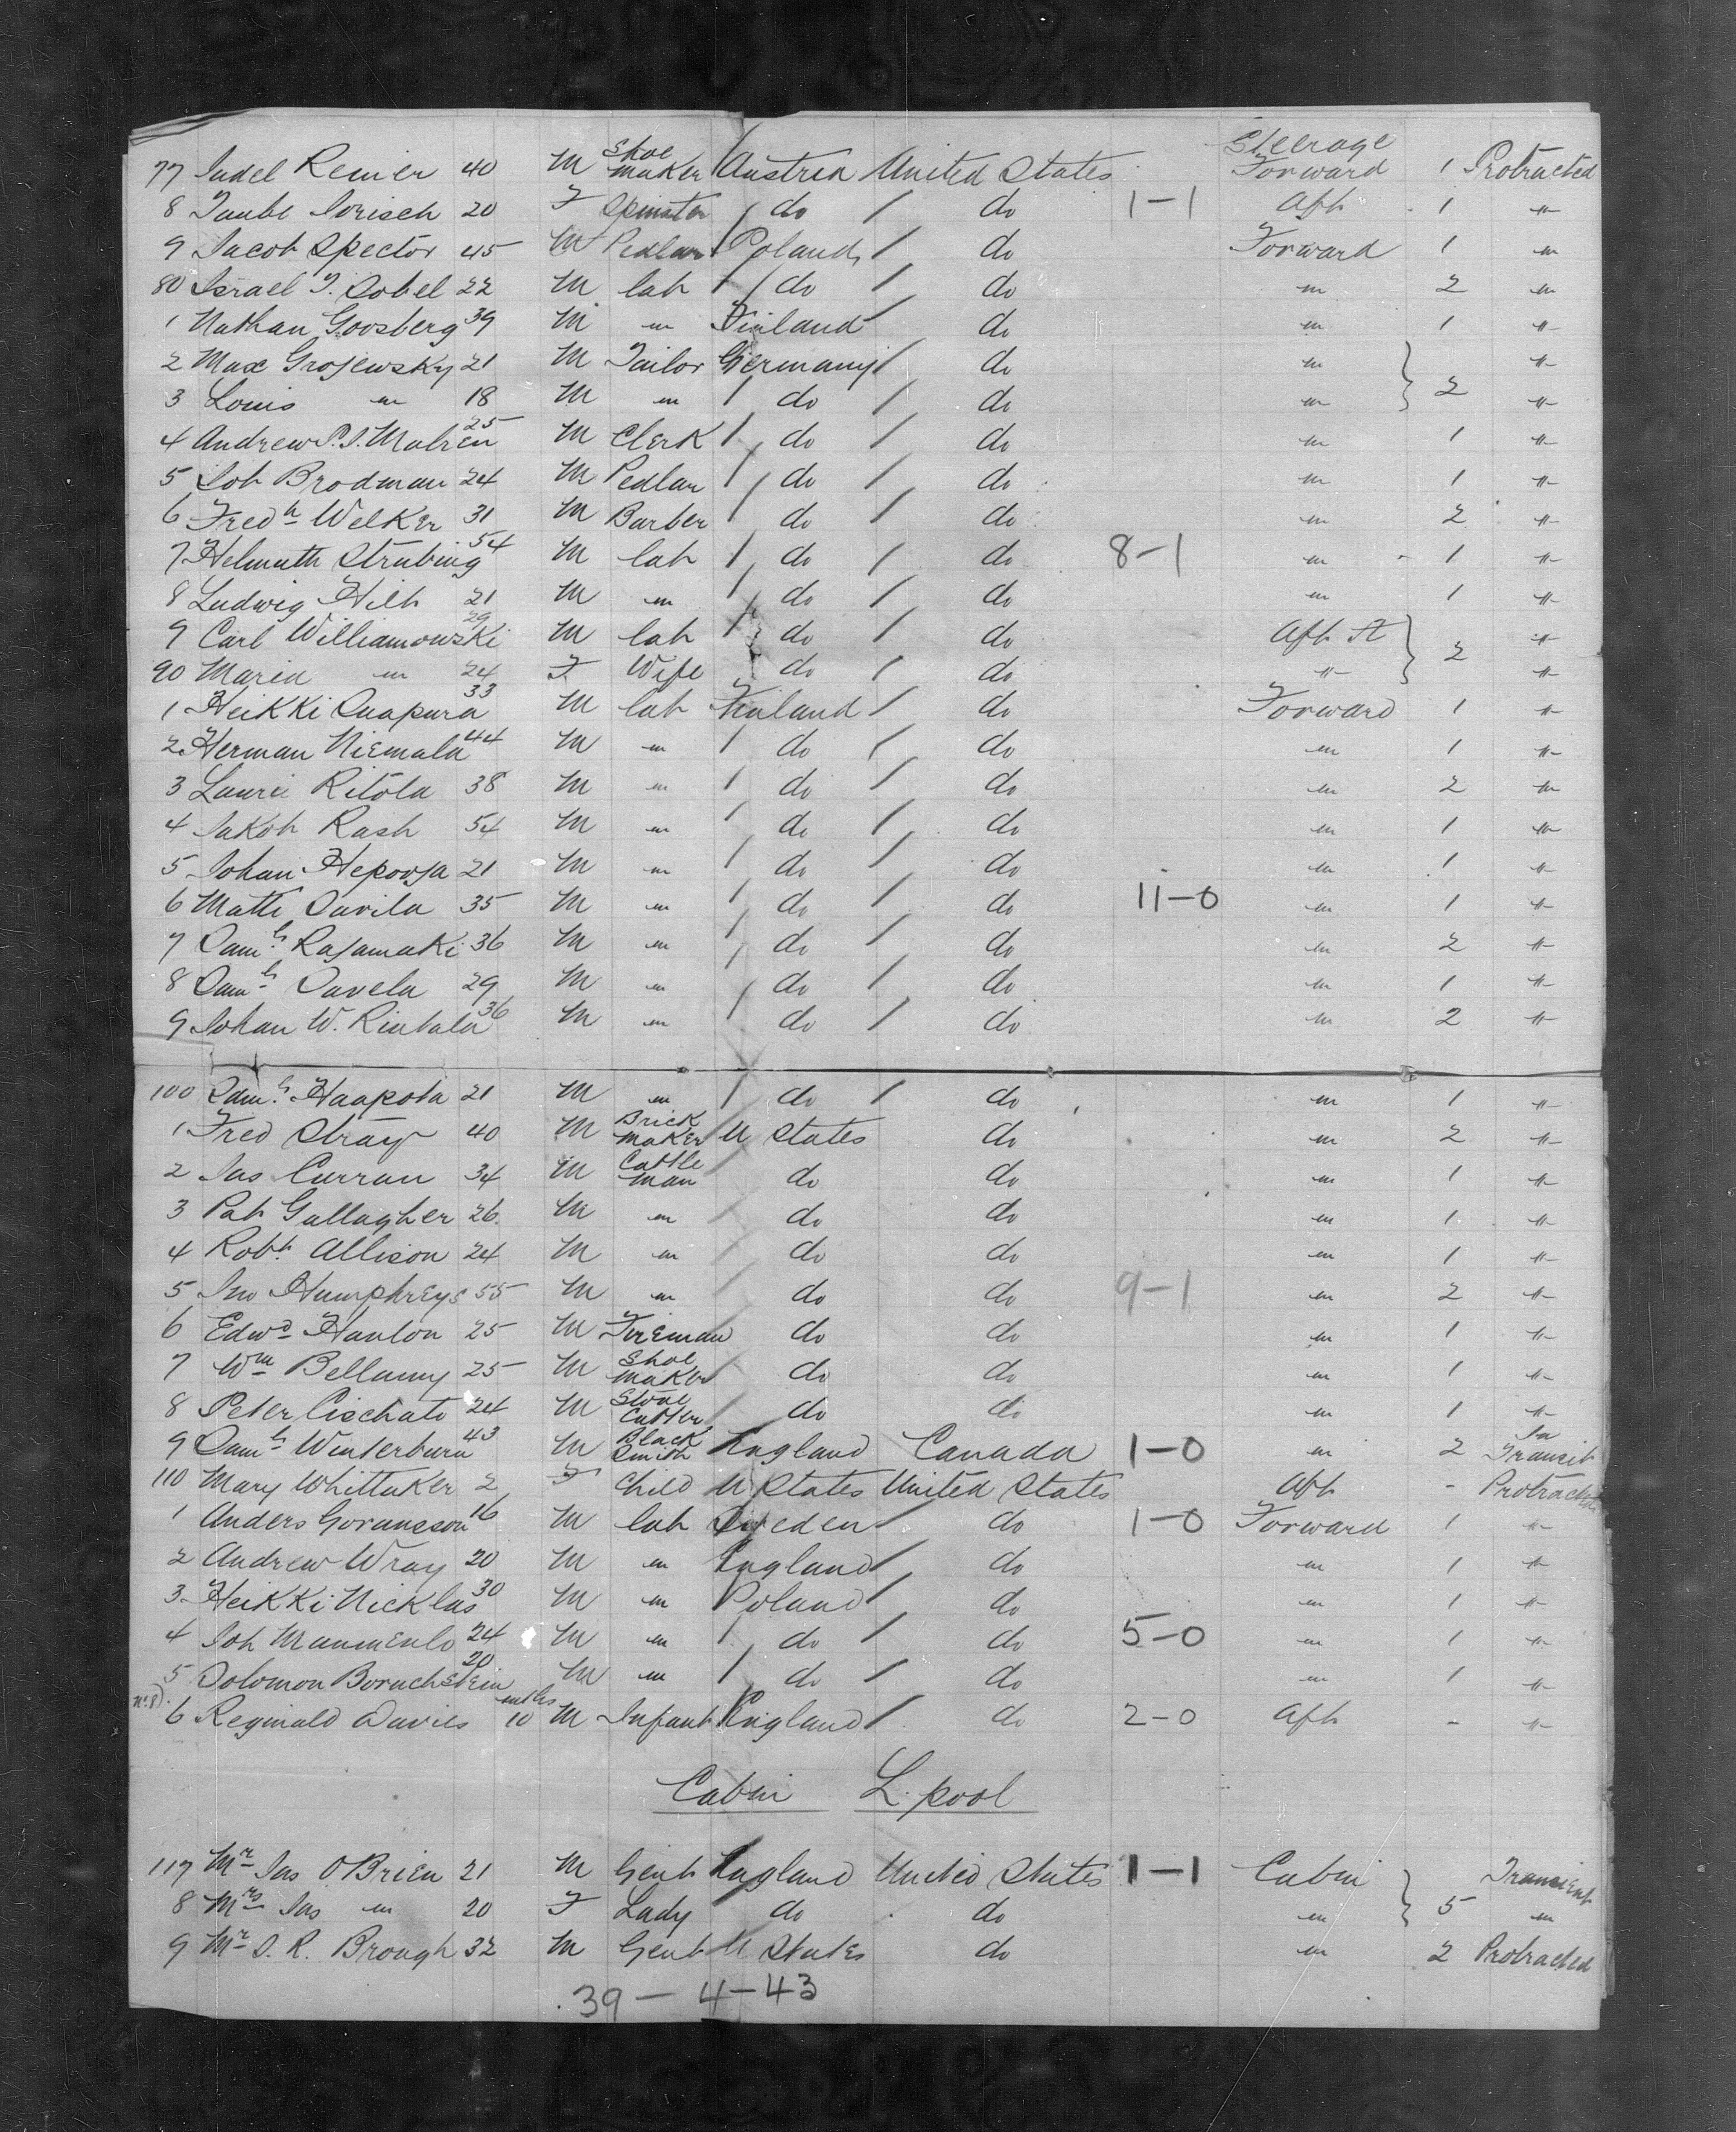 Steerage
77 Judel Reiner 40 M Shoe maker Austria United States Forward 1 Protracted
8 Taube Jorisch 20 F Spinster do do 1-1 Aft 1 "
9 Jacob Spector 45 M Pedlar Poland do Forward 1 "
80 Israel J. Sobel 22 M lab do do " 2 "
1 Nathan Goosberg 39 M " Finland do " 1 "
2 Max Grojewsky 21 M Tailor Germany do " 2 "
3 Louis " 18 M " do do " "
4 Andrew P.J. 25 M Clerk do do " 1 "
5 Joh Brodman 24 M Pedlar do do " 1 "
6 Fredk Welker 31 M Barber do do " 2 "
7 Helmuth Strubing 54 M lab do do 8-1 " 1 "
8 Ludwig Hilb 21 M " do do " 1 "
9 Carl Williamowski 29 M lab do do Aft 2 "
90 Maria " 24 F Wife do do " "
1 Heikki Luapura 33 M lab Finland do Forward 1 "
2 Herman Niemala 44 M " do do " 1 "
3 Lauri Ritola 38 M " do do " 2 "
4 Jakob Rash 54 M " do do " 1 "
5 Johan Hepooja 21 M " do do " 1 "
6 Matti Savila 35 M " do do 11-0 " 1 "
7 Saml Rajamaki 36 M " do do " 2 "
8 Saml Savela 29 M " do do " 1 "
9 Johan W. Rintala 36 M " do do " 2 "
100 Saml Haapota 21 M " do do " 1 "
1 Fred Stray 40 M Brick maker U States do " 2 "
2 Jas Curran 34 M Cattle man do do " 1 "
3 Pat Gallagher 26 M " do do " 1 "
4 Robt Allison 24 M " do do " 1 "
5 Jno Humphreys 55 M " do do 9-1 " 2 "
6 Edwd Hanlon 25 M Fireman do do " 1 "
7 Wm Bellamy 25 M Shoe maker do do " 1 "
8 Peter Cischato 24 M Stone Cutter do do " 1 "
9 Saml Winterburn 43 M Black Smith England Canada 1-0 " 2 In Transit
110 Mary Whittaker 2 F Child U States United States Aft - Protracted
1 Anders Goransson 16 M lab Sweden do 1-0 Forward 1 "
2 Andrew Wray 20 M " England do " 1 "
3 Heikki Nicklas 30 M " Poland do " 1 "
4 Joh 24 M " do do 5-0 " 1 "
5 Solomon Boruchstein 20 M " do do " 1 "
6 Reginald Davies 10 mths M Infant England do 2-0 Aft - "
Cabin L.pool
117 Mr Jas O'Brien 21 M Gent England United States 1-1 Cabin 5 Transient
8 Mrs Jas " 20 F Lady do do " "
9 Mr S. R. Brough 32 M Gent U States do " 2 Protracted
39-4-43